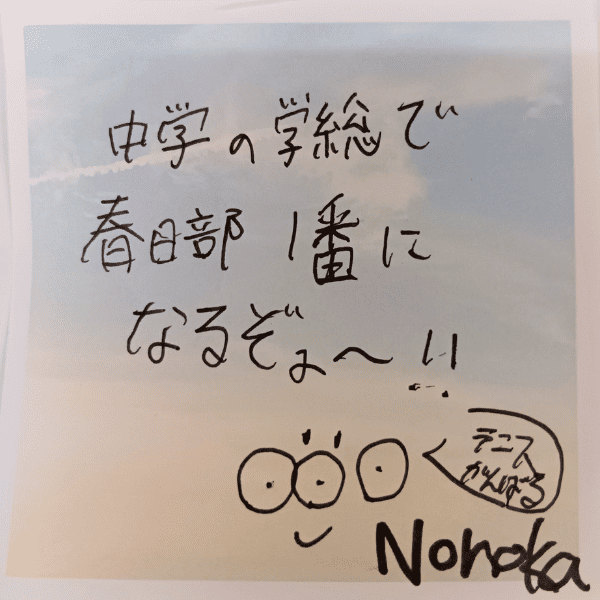 中学の学総で
春日部1番に
なるぞぉ〜!!
テニス
がんばる
Nonoka